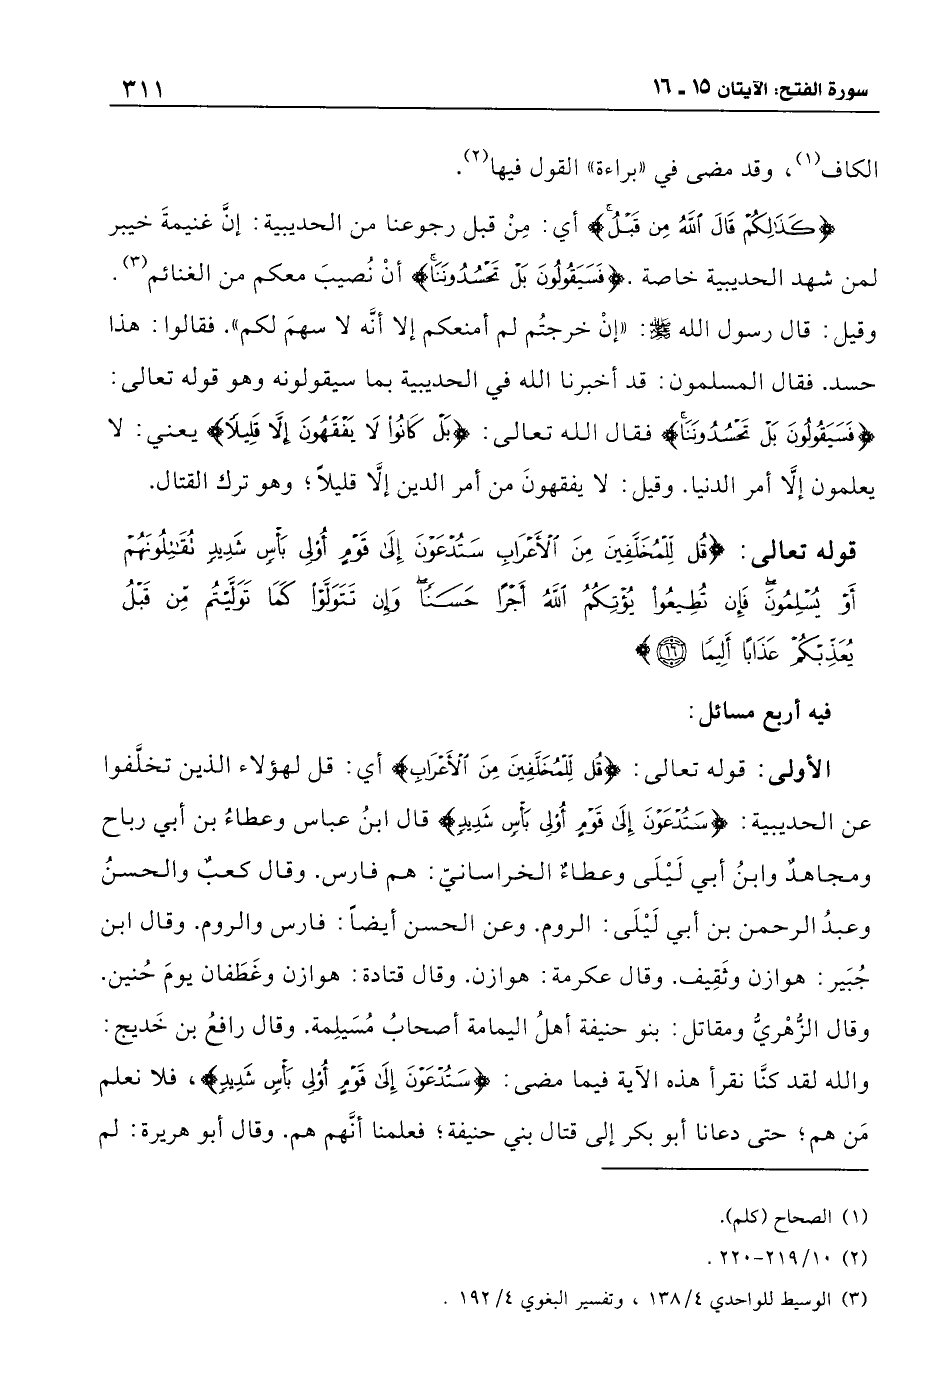 سورة الفتح: الآيتان ١٥ - ١٦
٣١١
الكاف(١)، وقد مضى في «براءة» القول فيها(٢).
﴿كَذَٰلِكُمْ قَالَ ٱللَّهُ مِن قَبْلُ﴾ أي: مِنْ قبل رجوعنا من الحديبية: إنَّ غنيمةَ خيبر
لمن شهد الحديبية خاصة. ﴿فَسَيَقُولُونَ بَلْ تَحْسُدُونَنَا﴾ أنْ نُصيبَ معكم من الغنائم(٣).
وقيل: قال رسول الله ﷺ: «إنْ خرجتُم لم أمنعكم إلا أنَّه لا سهمَ لكم». فقالوا: هذا
حسد. فقال المسلمون: قد أخبرنا الله في الحديبية بما سيقولونه وهو قوله تعالى:
﴿فَسَيَقُولُونَ بَلْ تَحْسُدُونَنَا﴾ فقال الله تعالى: ﴿بَلْ كَانُوا۟ لَا يَفْقَهُونَ إِلَّا قَلِيلًا﴾ يعني: لا
يعلمون إلَّا أمر الدنيا. وقيل: لا يفقهونَ من أمر الدين إلَّا قليلاً؛ وهو ترك القتال.
قوله تعالى: ﴿قُل لِّلْمُخَلَّفِينَ مِنَ ٱلْأَعْرَابِ سَتُدْعَوْنَ إِلَىٰ قَوْمٍ أُو۟لِى بَأْسٍ شَدِيدٍ تُقَٰتِلُونَهُمْ
أَوْ يُسْلِمُونَ فَإِن تُطِيعُوا۟ يُؤْتِكُمُ ٱللَّهُ أَجْرًا حَسَنًا وَإِن تَتَوَلَّوْا۟ كَمَا تَوَلَّيْتُم مِّن قَبْلُ
يُعَذِّبْكُمْ عَذَابًا أَلِيمًا ١٦﴾
فيه أربع مسائل:
الأولى: قوله تعالى: ﴿قُل لِّلْمُخَلَّفِينَ مِنَ ٱلْأَعْرَابِ﴾ أي: قل لهؤلاء الذين تخلَّفوا
عن الحديبية: ﴿سَتُدْعَوْنَ إِلَىٰ قَوْمٍ أُو۟لِى بَأْسٍ شَدِيدٍ﴾ قال ابنُ عباس وعطاءُ بن أبي رباح
ومجاهدٌ وابنُ أبي لَيْلَى وعطاءٌ الخراسانيّ: هم فارس. وقال كعبٌ والحسنُ
وعبدُ الرحمن بن أبي لَيْلَى: الروم. وعن الحسن أيضاً: فارس والروم. وقال ابن
جُبَير: هوازن وثَقِيف. وقال عكرمة: هوازن. وقال قتادة: هوازن وغَطَفان يومَ حُنين.
وقال الزُّهْريُّ ومقاتل: بنو حنيفة أهلُ اليمامة أصحابُ مُسَيلِمة. وقال رافعُ بن خَديج:
والله لقد كنَّا نقرأ هذه الآية فيما مضى: ﴿سَتُدْعَوْنَ إِلَىٰ قَوْمٍ أُو۟لِى بَأْسٍ شَدِيدٍ﴾، فلا نعلم
مَن هم؛ حتى دعانا أبو بكر إلى قتال بني حنيفة؛ فعلمنا أنَّهم هم. وقال أبو هريرة: لم
(١) الصحاح (كلم).
(٢) ١٠/٢١٩-٢٢٠ .
(٣) الوسيط للواحدي ٤/ ١٣٨ ، وتفسير البغوي ٤/ ١٩٢ .